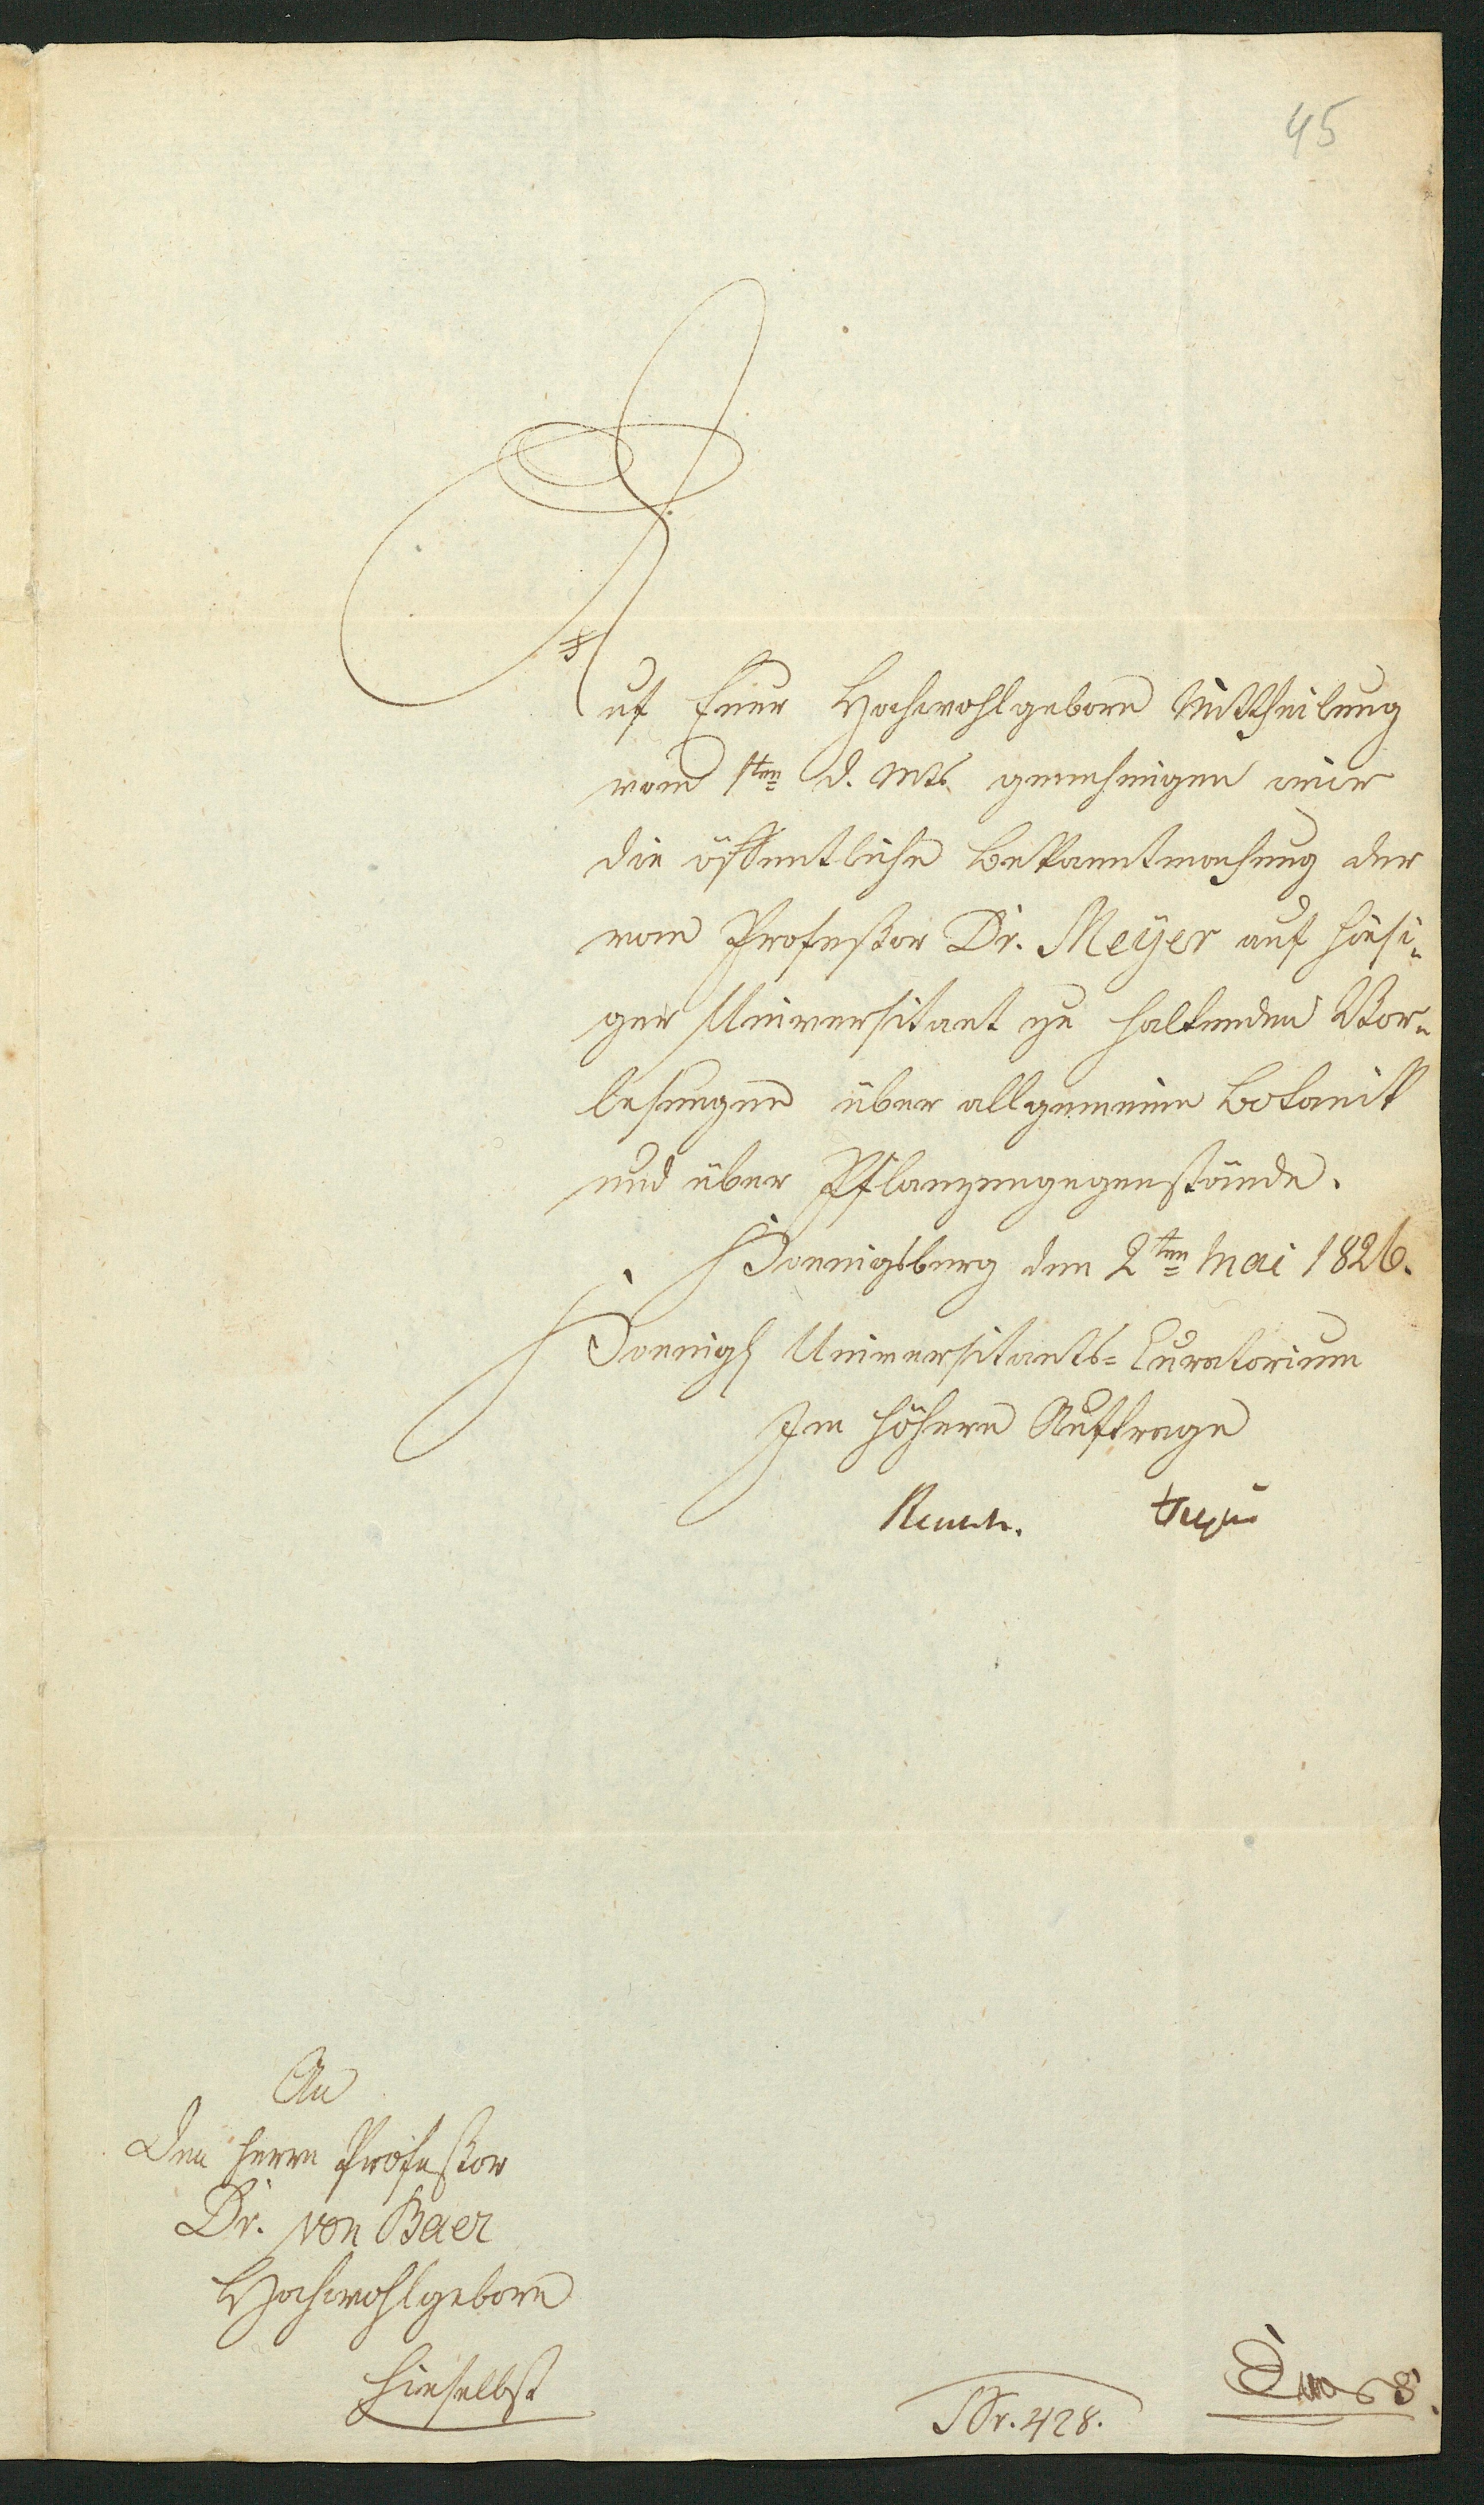 45
Auf Euer Hochwohlgeboren Mittheilung
vom 1ten d. Mts. genehmigen wir
die öffentliche Bekanntmachung der
vom Profeßor Dr. Meyer auf hiesi-
ger Universitaet zu haltenden Vor-
lesungen über allgemeine Botanik
und über Pflanzengegenstände.
Koenigsberg den 2ten Mai 1826.
Koenigl Universitaets-Curatorium
Im höhern Auftrage
Reusch.
An
den Herrn Profeßor
Dr. von Baer
Hochwohlgeboren
hieselbst
Nr. 428.